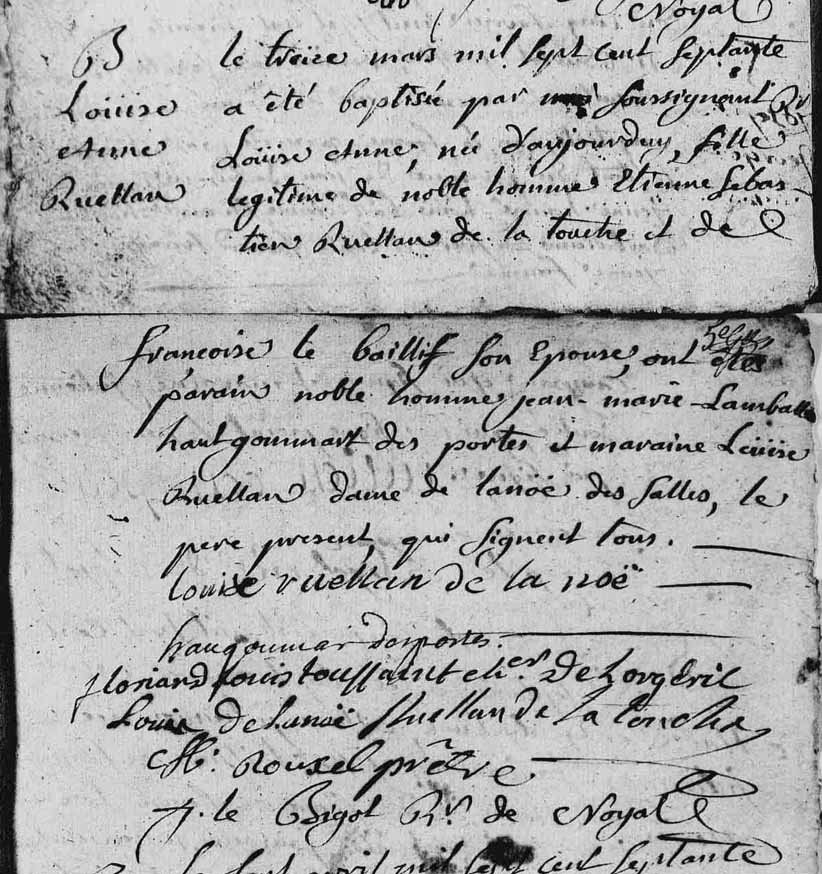 Noyal
B
Louise
Anne
Ruellan
le treize mars mil sept cent septante
a été baptisée par moi soussignant
Loüise Anne, née d'aujourduy, fille
legitime de noble homme Etienne Sebas-
tien Ruellan de la touche et de
françoise le baillif son Epouse, ont étés
parain noble homme jean-marie-Lamballe
hautgoummart des portes et maraine Loüise
Ruellan dame de lanoë des salles, le
pere present, qui signent tous.
louise ruellan de la noë
haugoumar desportes.
floriand louis toussaint cher. De Lorgeril
Louis De Lanoë Ruellan de la touche
Rouxel prêtre
J. le Bigot Rr. de Noyal
le sept avril mil sept cent septante